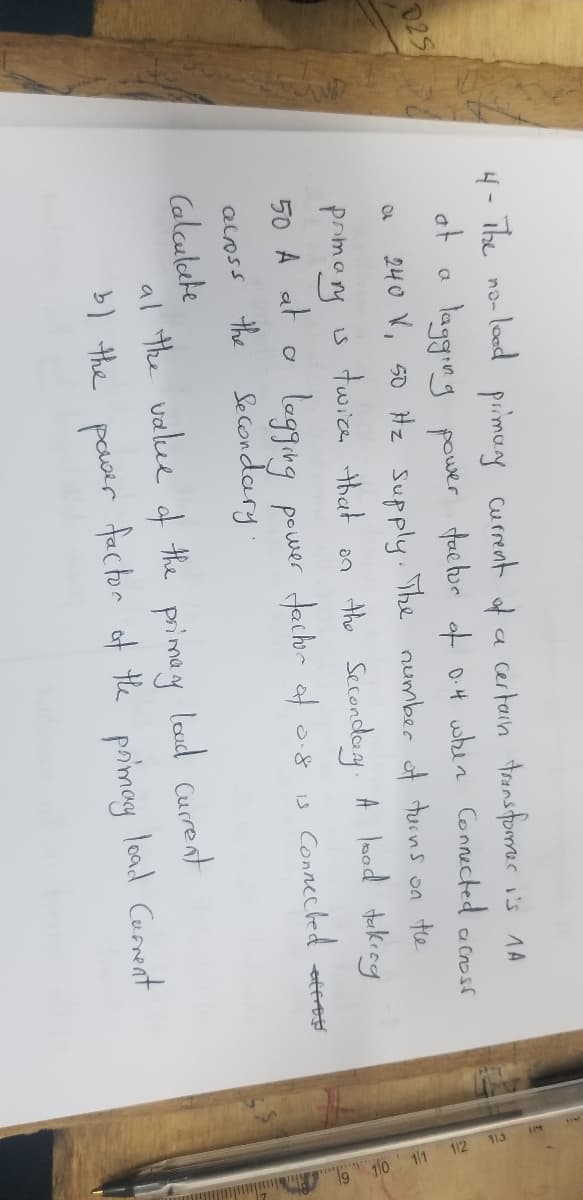 4- The no-load primary current of a certain transformer is 1A
at a lagging power factor of 0.4 when Connected across
a 240 V, 50 Hz supply. The number of turns on the
primary is twice that on the Secondary. A load taking
50 A at a lagging power factor of 0.8 is Connected across
across the Secondary.
Calculate
a) the value of the primay load current
b) the power factor of the primary load Current
025
9 10 11 112 113